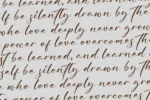 be learned, and learned
lf be silently drawn by the
who love deeply never grow
power of love overcomes th
st be learned, and learned
self be silently drawn by th
who love deeply never grow
power of love overcomes the
be learned, and learned